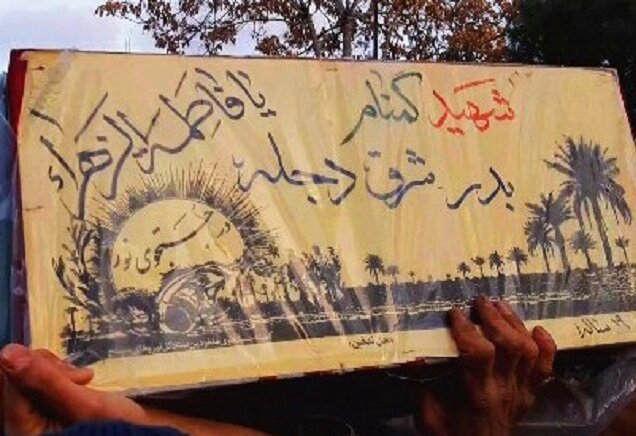 شهید گمنام
یا فاطمة الزهراء
بدر - شرق دجله
در جستجوی نور
۱۹ ساله